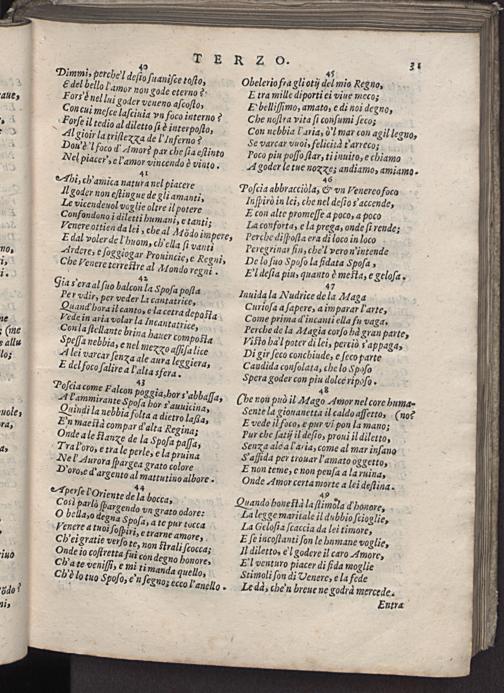 TERZO. 31
40
Dimmi, perche'l desio suanisce tosto,
E del bello l'amor non gode eterno?
Fors'è nel lui goder veneno ascosto,
Con cui mesce lasciuia vn foco interno?
Forse il tedio al diletto si è interposto,
Al gioir la tristezza de l'Inferno?
Dou'è'l foco d'Amor? par che sia estinto
Nel piacer, e l'amor vincendo è vinto.
41
Ahi, ch'amica natura nel piacere
Il goder non estingue de gli amanti,
Le vicendeuol voglie oltre il potere
Confondono i diletti humani, e tanti;
Venere ottien da lei, che al Mõdo impere,
E dal voler de l'huom, ch'ella si vanti
Ardere, e soggiogar Prouincie, e Regni,
Che Venere terrestre al Mondo regni.
42
Già s'era al suo balcon la Sposa posta
Per vdir, per veder La cantatrice,
Quand'hora il canto, e la cetra deposta
Vede in aria volar la Incantatrice,
Con la stellante brina hauer composta
Spessa nebbia, e nel mezzo assisa lice
A lei varcar senza ale aura leggiera,
E del foco salire a l'alta sfera.
43
Poscia come Falcon poggia, hor s'abbassa,
A l'ammirante Sposa hor s'auuicina,
Quindi la nebbia folta a dietro lassa,
E'n maestà compar d'alta Regina;
Onde a le stanze de la Sposa passa,
Tra l'oro, e tra le perle, e la pruina
Ne l'Aurora spargea grato colore
D'oro, e d'argento al mattutino albore.
44
Aperse l'Oriente de la bocca,
Così parlò spargendo vn grato odore:
O bella, o degna Sposa, a te pur tocca
Venere a tuoi sospiri, e trarne amore,
Ch'ei gratie verso te, non strali scocca;
Onde io costretta fui con degno honore,
Ch'a te venissi, e mi ti manda quello,
Ch'è lo tuo Sposo, e'n segno; ecco l'anello.
45
Obelerio fra gli otij del mio Regno,
E tra mille diporti ei viue meco;
E' bellissimo, amato, e di noi degno,
Che nostra vita si consumi seco;
Con nebbia l'aria, ò'l mar con agil legno,
Se varcar vuoi, felicità t'arreco;
Poco piu posso star, ti inuito, e chiamo
A goder le tue nozze; andiamo, amiamo.
46
Poscia abbracciòla, & vn Venereo foco
Inspirò in lei, che nel desio s'accende,
E con alte promesse a poco, a poco
La conforta, e la prega, onde si rende;
Perche disposta era di loco in loco
Peregrinar sin, che'l vero n'intende
De lo suo Sposo la fidata Sposa,
E'l desia piu, quanto è mesta, e gelosa.
47
Inuida la Nudrice de la Maga
Curiosa a sapere, a imparar l'arte,
Come prima d'incanti ella fu vaga,
Perche de la Magia corso hà gran parte,
Visto hà'l poter di lei, perciò s'appaga,
Di gir seco conchiude, e seco parte
Candida consolata, che lo Sposo
Spera goder con piu dolce riposo.
48
Che non può il Mago Amor nel core huma-
Sente la giouanetta il caldo affetto, (no?
E vede il foco, e pur vi pon la mano;
Pur che satij il desio, proui il diletto,
Senza ale a l'aria, come al mar insano
S'affida per trouar l'amato oggetto,
E non teme, e non pensa a la ruina,
Onde Amor certa morte a lei destina.
49
Quando honestà la stimola d'honore,
La legge maritale il dubbio scioglie,
La Gelosia scaccia da lei timore,
E se incostanti son le humane voglie,
Il diletto, e'l godere il caro Amore,
E'l venturo piacer di fida moglie
Stimoli son di Venere, e la fede
Le dà, che'n breue ne godrà mercede.
Entra